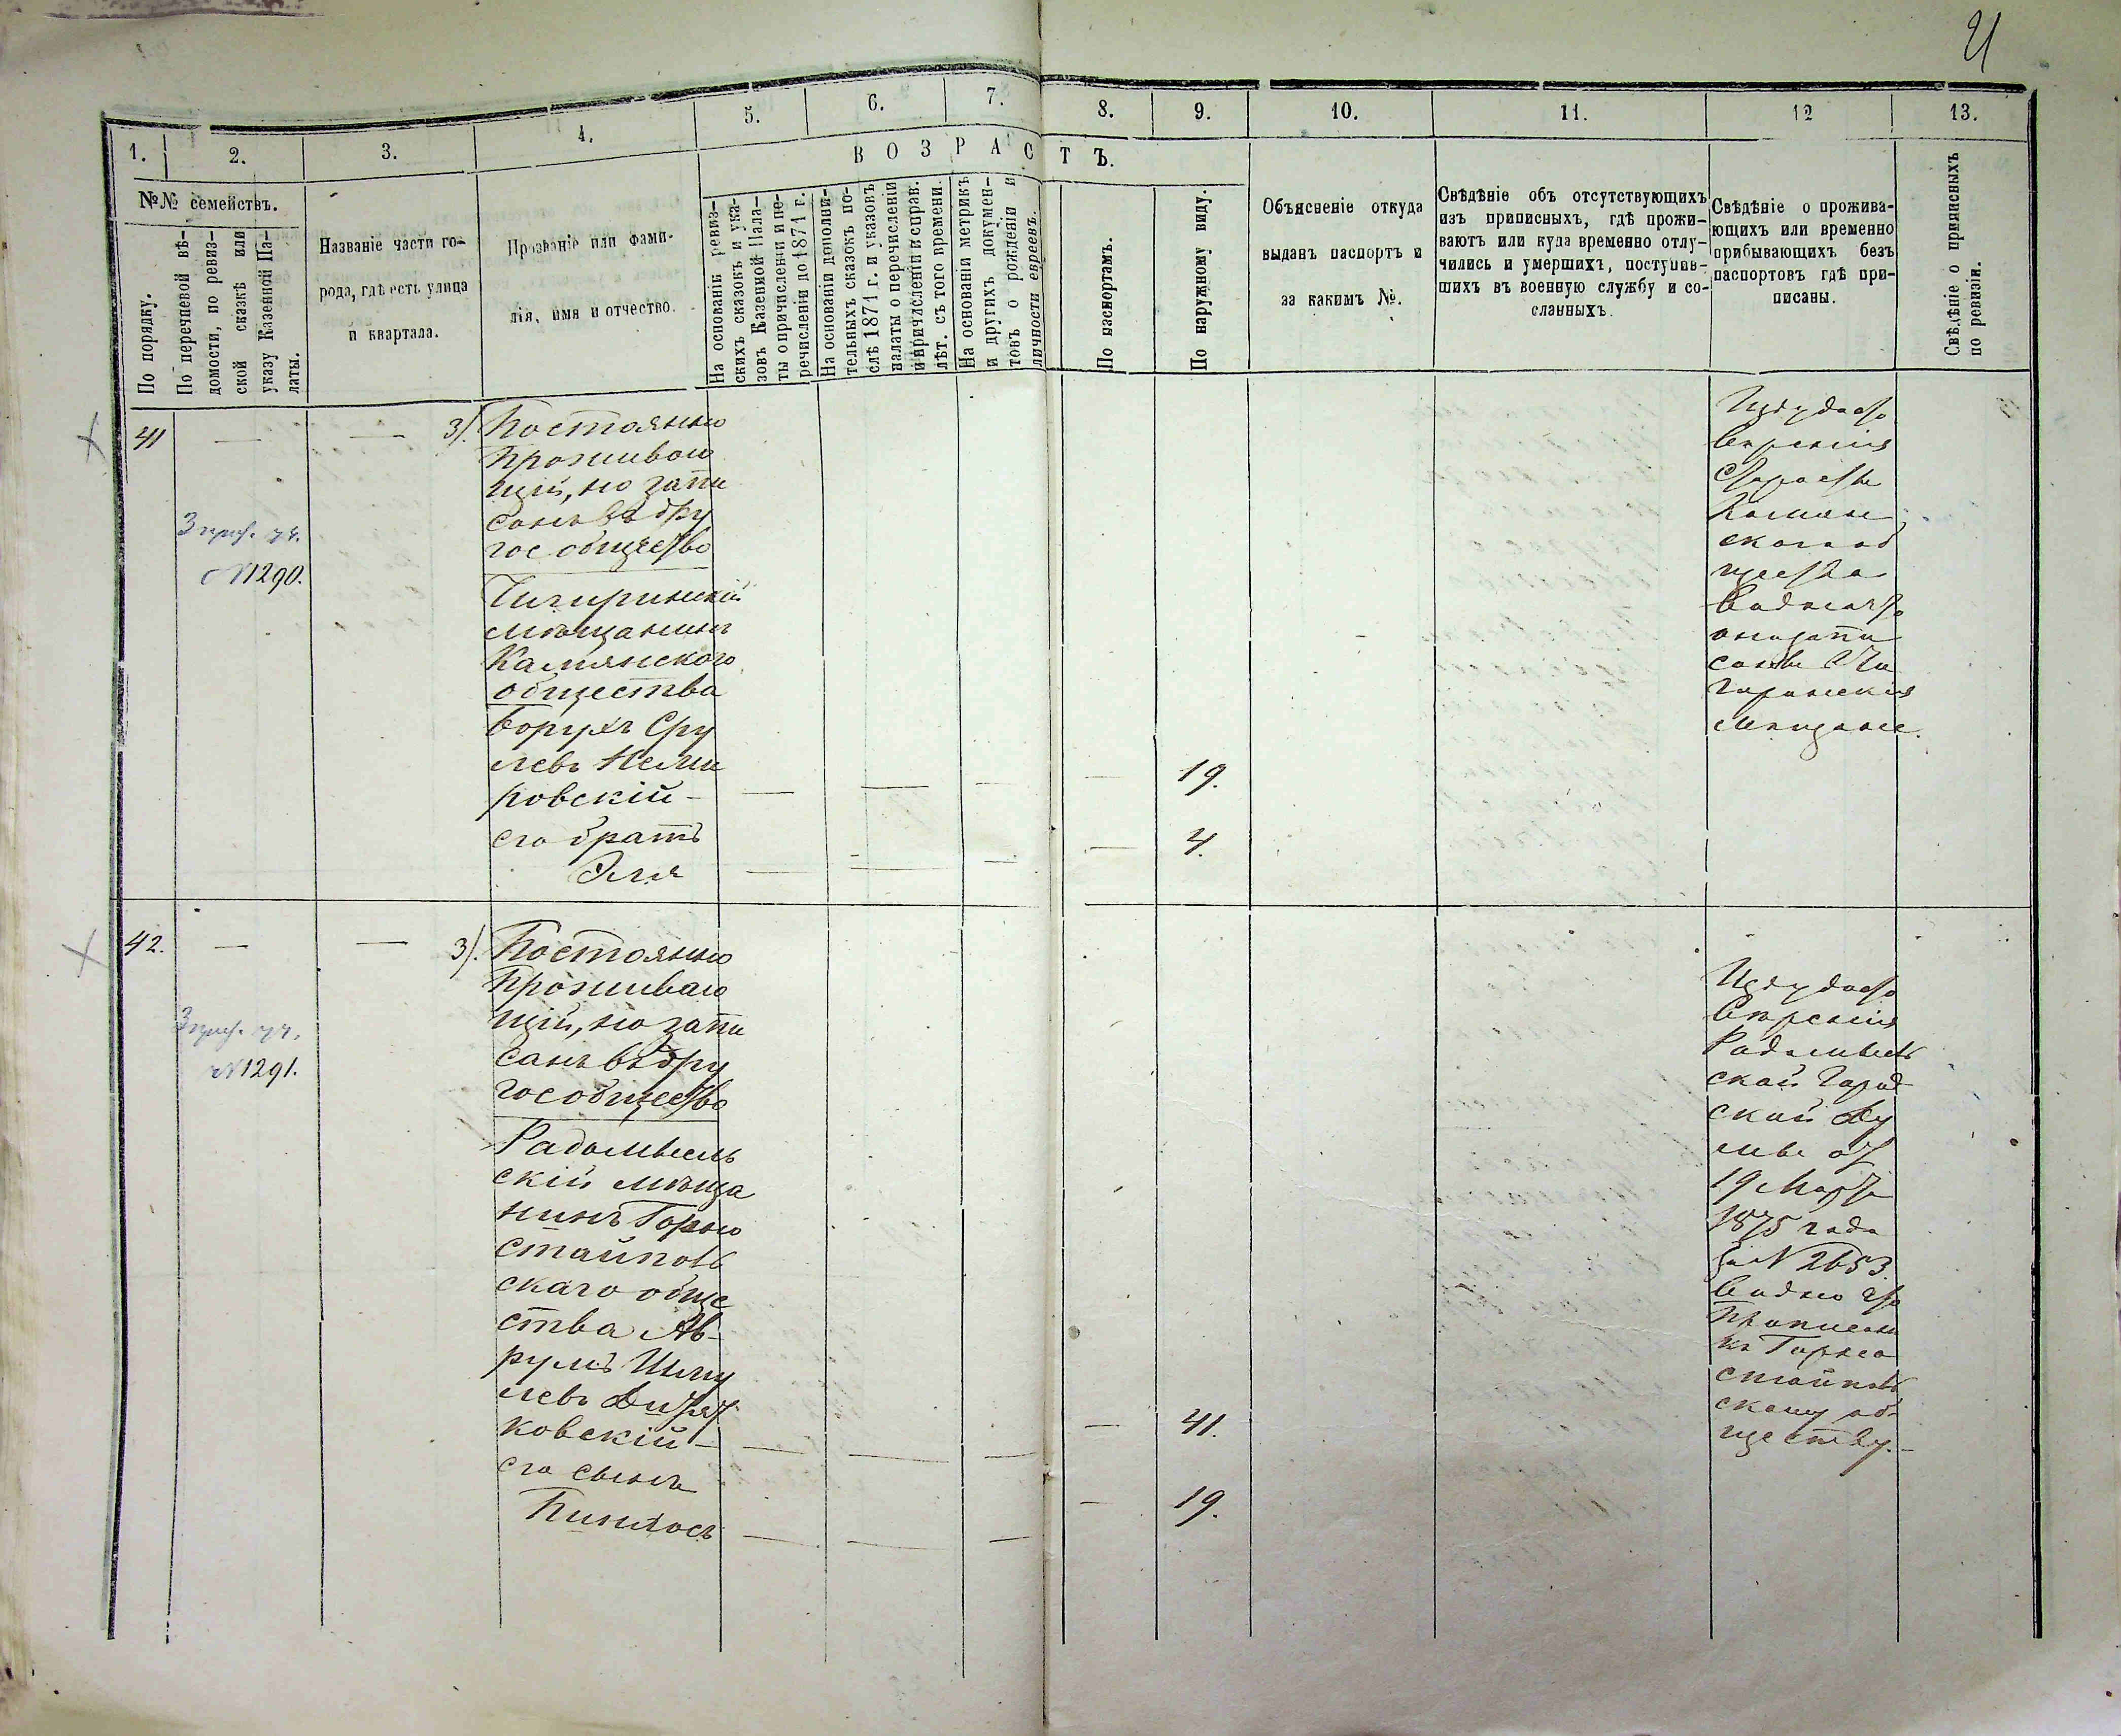 21
1.
2.
3.
4.
5.
6.
7.
8.
9.
10.
11.
12
13.
ВОЗРАСТЪ.
№№ семействъ.
По порядку.
По перечневой вѣ-
домости, по ревиз-
ской сказкѣ или
указу Казенной Па-
латы.
Названіе части го-
рода, гдѣ есть улица
и квартала.
Прозваніе или фами-
лія, имя и отчество.
На основаніи ревиз-
скихъ сказокъ и ука-
зовъ Казенной Пала-
ты о причисленіи и пе-
речисленіи до 1871 г.
На основаніи дополни-
тельныхъ сказокъ по-
слѣ 1871 г. и указовъ
палаты о перечисленіи
и причисленіи и справ.
лѣт. съ того времени.
На основаніи метрикъ
и другихъ докумен-
товъ о рожденіи и
личности евреевъ.
По паспортамъ.
По наружному виду.
Объясненіе откуда
выданъ паспортъ и
за какимъ №.
Свѣдѣніе объ отсутствующихъ
изъ приписныхъ, гдѣ прожи-
ваютъ или куда временно отлу-
чились и умершихъ, поступив-
шихъ въ военную службу и со-
сланныхъ.
Свѣдѣніе о прожива-
ющихъ или временно
прибывающихъ безъ
паспортовъ гдѣ при-
писаны.
Свѣдѣніе о приписныхъ
по ревизіи.
41
3 приз. уч.
№1290.
3).
Постоянно
Проживаю
щій, но запи
санъ въ дру
гое общество
Чигиринскій
мѣщанинъ
Камянского
общества
Борухъ Сру
левъ Неми
ровскій —
его братъ
Эля
19.
4.
старосты
Камян
ского об
щества
Видно что
они запи
саны Чи
гиринскія
мѣщане.
42.
3 приз. уч.
№1291.
3).
Постоянно
Проживаю
щій, но запи
санъ въ дру
гое общество
Радомысль
скій мѣща
нинъ Горно
стайповъ
скаго обще
ства Ав-
румъ Шму
левъ
ковскій —
его сынъ
Пинхосъ
41.
19.
Радомысль
ской Город
ской Ду
мы отъ
19 Марта
1875 года
за № 2653.
Видно что
Приписаны
къ Горно
стайповъ
скому об-
ществу. —